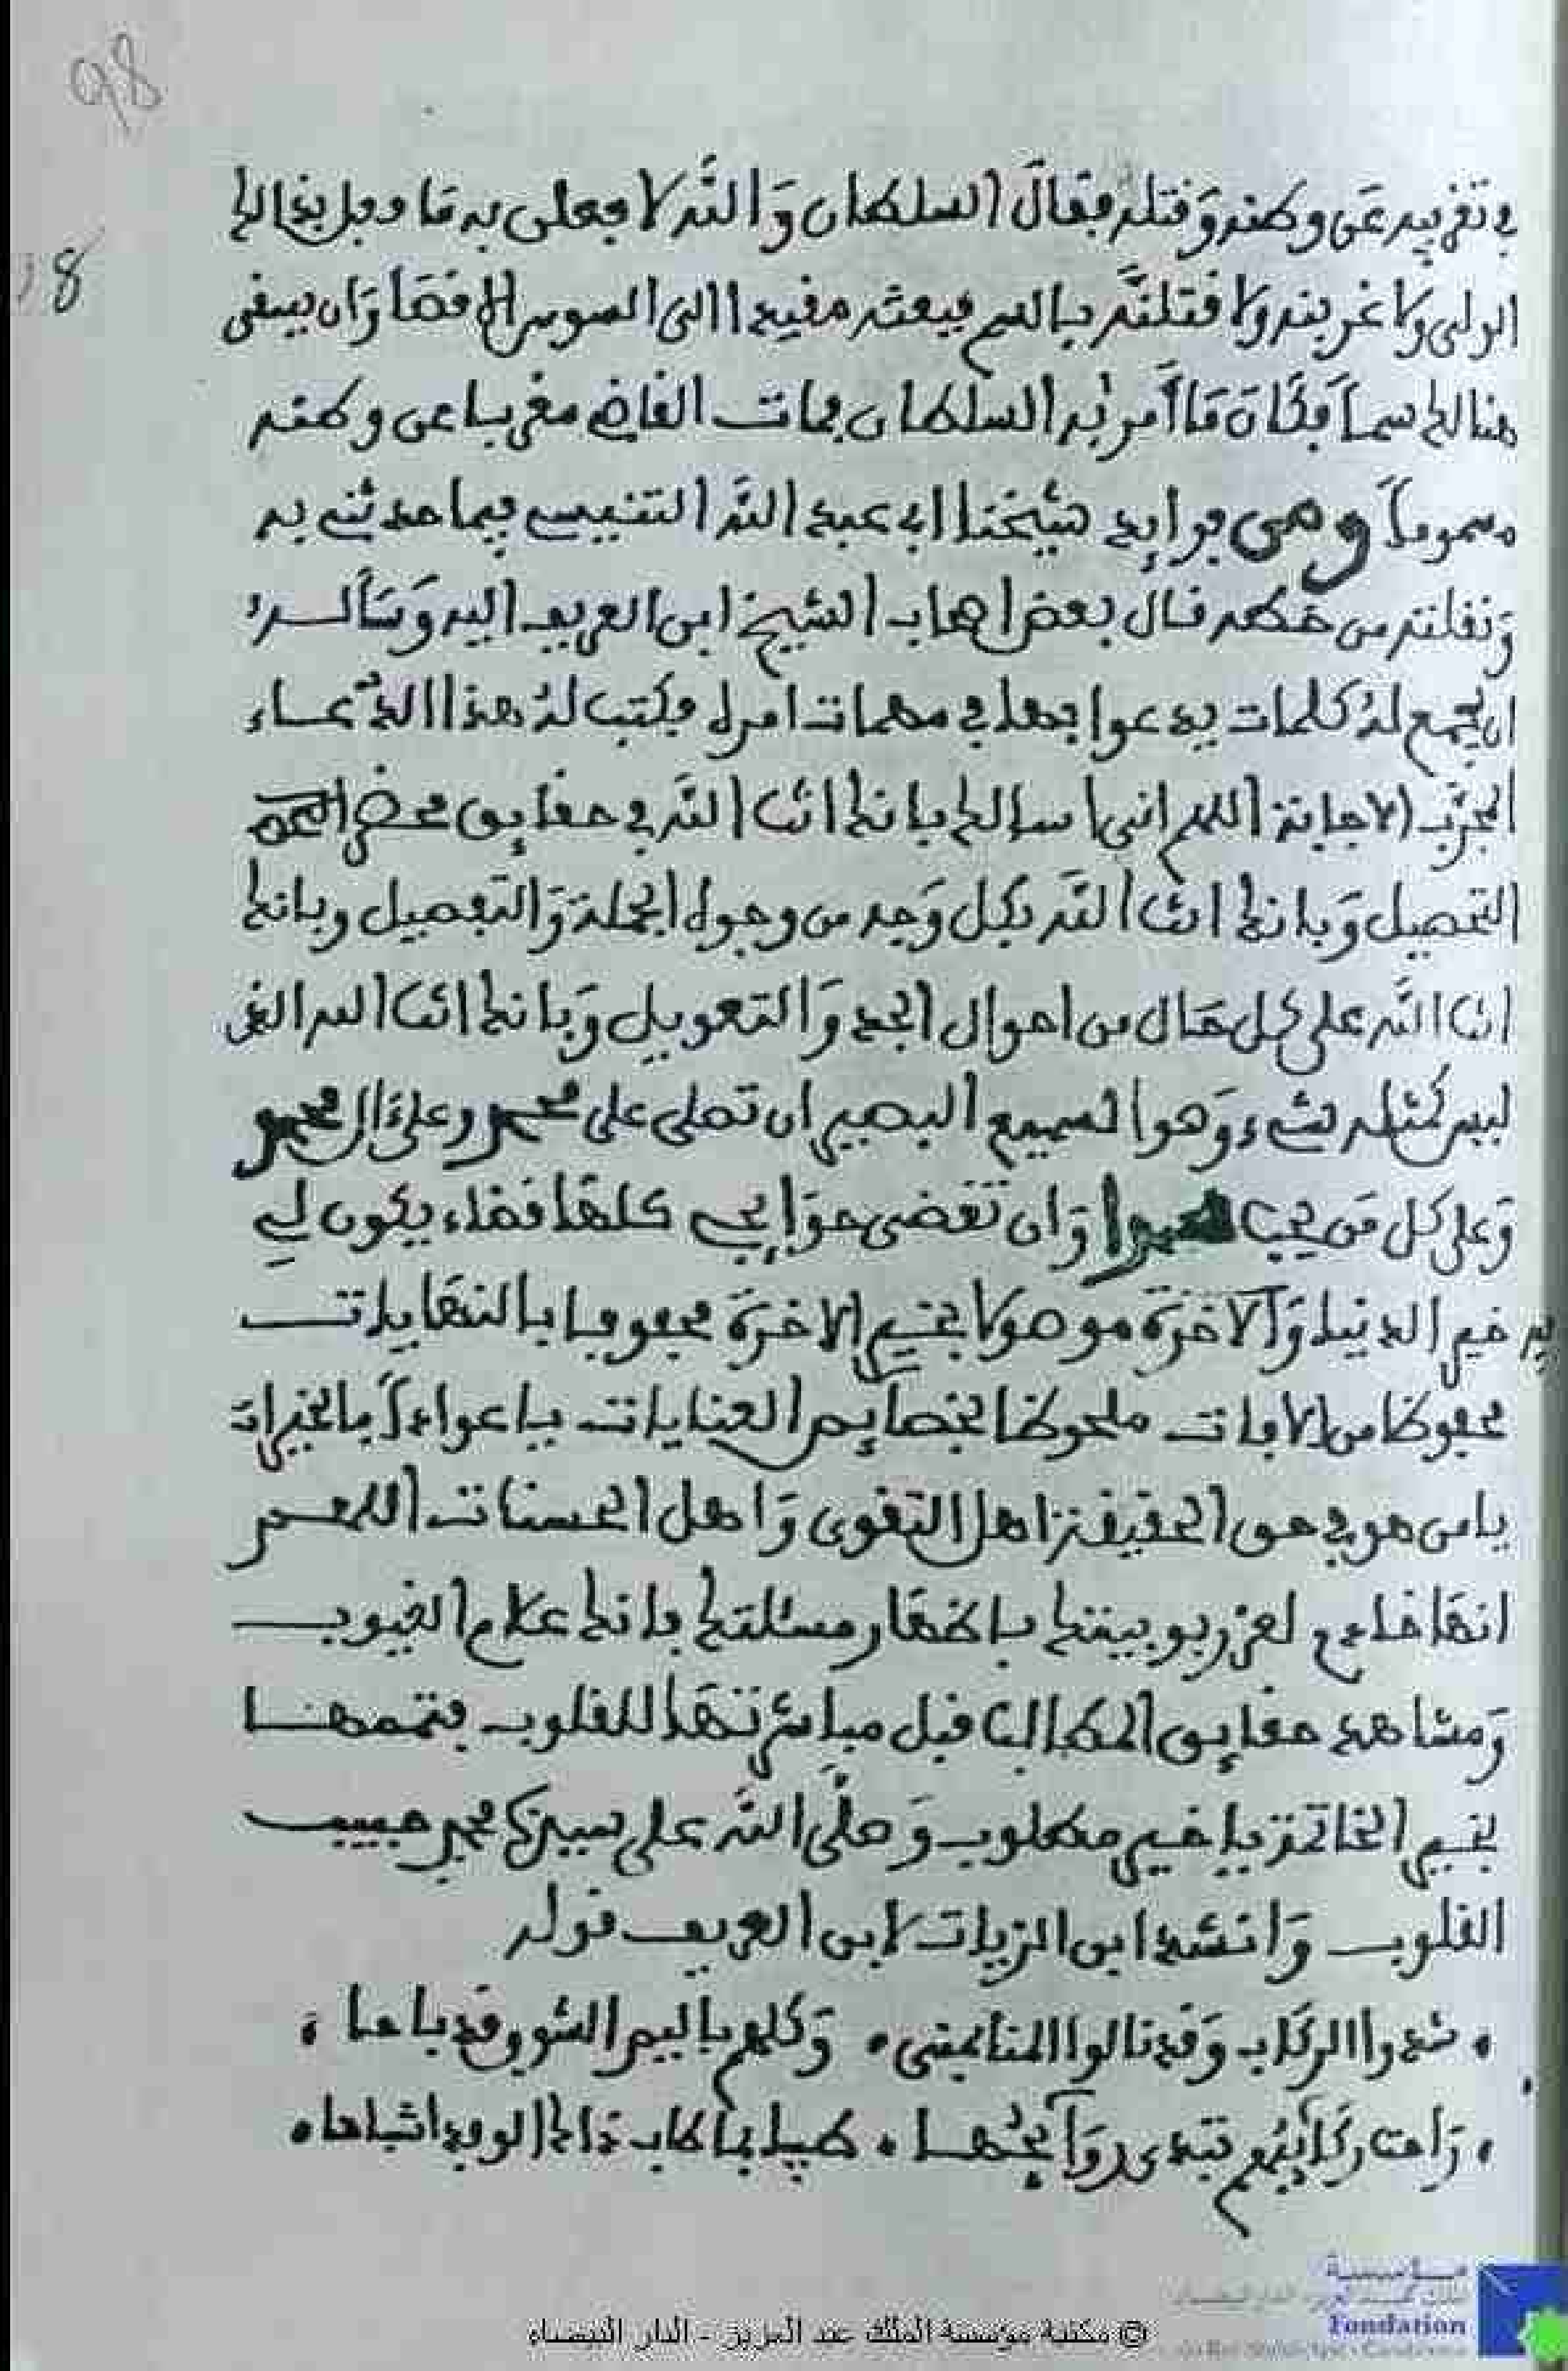 98
98
في تغريبه عن وطنه وقتله فقال السلطان والله لا فعلن به ما فعل بذالك
الولي ولا غربنه ولا قتلنه بالسم فبعثه مقيدا الى السوس الاقصا وان يسقى
هنالك سما فكان ما امر به السلطان فمات القاضي مغربا عن وطنه
مسموما ومن فوايد شيخنا ابي عبد الله التنيسي فيما حدثني به
ونقلته من خطه قال بعض اصحاب الشيخ ابن العريف اليه وساله
ان يجمع له كلمات يدعوا بها في مهمات امره فكتب له هذا الدعاء
المجرب الاجابة اللهم اني اسالك بانك انت الله في حقايق محض
التحصيل وبانك انت الله بكل وجه من وجوه الجملة والتفصيل وبانك
انت الله على كل حال من احوال الجد والتعويل وبانك انت الله الذي
ليس كمثله شيء وهو السميع البصير ان تصلى على محمد وعلى ءال محمد
وعلى كل من يحب وان تقضى حوايجي كلها قضاء يكون لي
به خير الدنيا والاخرة موصولا بخير الاخرة محفوفا بالنهايات
محفوظا من الافات ملحوظا بخصايص العنايات يا عوادا بالخيرات
يا من هو في حق الحقيقة اهل التقوى واهل الحسنات اللهم
انها خاضع لعز ربوبيتك باظهار مسئلتك بانك علام الغيوب
ومشاهد حقايق المطالب قبل مباشرتها للقلوب فتممها
بخير الخاتمة يا خير مطلوب وصلى الله على سيدنا محمد حبيب
القلوب وانشد ابن الزيات لابن العريف قوله
شدوا الركاب وقد نالوا المنا بمنى وكلهم باليم الشوق قد باحا
راحت ركايبهم تبدى روايحها طيبا بما طاب ذاك الوفد اشباحا
© مكتبة مؤسسة الملك عبد العزيز - الدار البيضاء
مؤسسة
Fondation